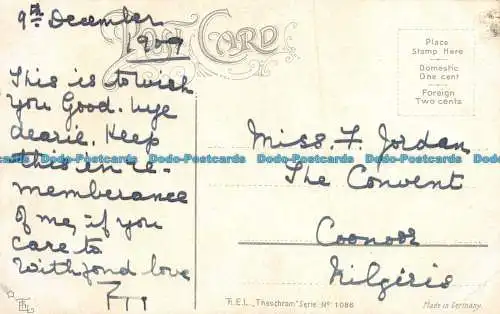 9th December
1909
POST CARD
This is to wish
you Good-bye
dearie. Keep
this in re-
memberance
of me, if you
care to
With fond love
Place
Stamp Here
Domestic
One cent
Foreign
Two cents
Miss. F. Jordan
The Convent
Coonoor
Nilgiris
Dodo-Postcards Dodo-Postcards Dodo-Postcards Dodo-Postcards Dodo-Postcards
T.E.L. „Theochrom" Serie Nº 1086
Made in Germany.